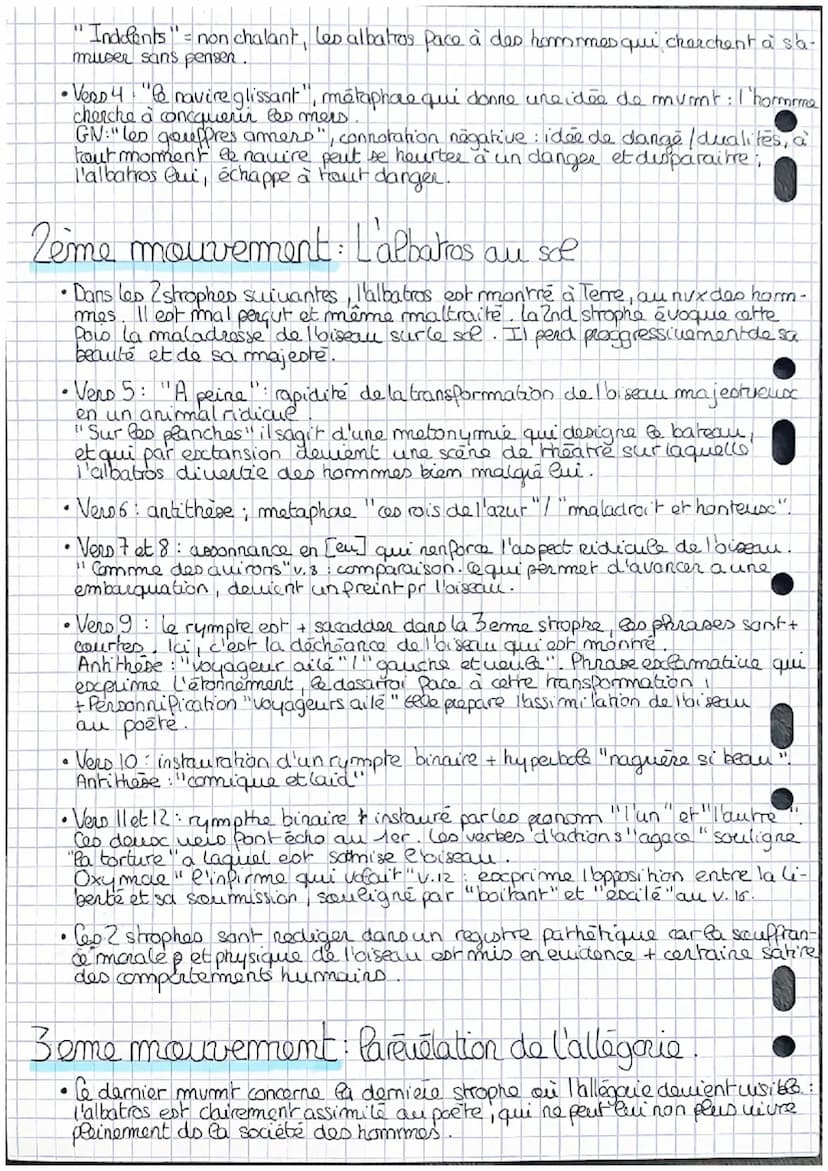 "Indolents" = non chalant, les albatros face à des hommmes qui cherchent à s'a-
muser sans penser.
• Vers 4 : "le navire glissant", métaphore qui donne une idée de mvmt : l'hommme
cherche à concquérir les mers.
GN : "les gouffres amers", connotation négative : idée de dangé / dualités, à
tout momment le navire peut se heurter à un danger et disparaitre ;
l'albatros lui, échappe à tout danger.
2ème mouvement : L'albatros au sol
• Dans les 2 strophes suivantes, l'albatros est montré à Terre, au nvx des homm-
mes. Il est mal perçut et même maltraité. La 2nd strophe évoque cette
fois la maladresse de l'oiseau sur le sol. Il perd proggressivement de sa
beauté et de sa majesté.
• Vers 5 : "A peine" : rapidité de la transformation de l'oiseau majestueux
en un animal ridicule.
"Sur les planches" il sagit d'une metonymie qui designe le bateau,
et qui par exctansion devient une scène de théatre sur laquelle
l'albatros divertie des hommmes bien malgré lui.
• Vers 6 : antithèse ; metaphore "ces rois de l'azur" / "maladroit et honteux".
• Vers 7 et 8 : assonnance en [eu] qui renforce l'aspect ridicule de l'oiseau.
"Comme des avirons" v.8 : comparaison. Ce qui permet d'avancer a une
embarquation, devient un freint pr l'oiseau.
• Vers 9 : le rympte est + saccaddée dans la 3eme strophe, les phrases sont +
courtes. Ici, c'est la déchéance de l'oiseau qui est montré.
Antithèse : "voyageur ailé" / "gauche et veule". Phrase exclamative qui
exprime l'étonnement, le desarroi face à cette transformation !
+ Personnification "voyageurs ailé" prépare l'assimilation de l'oiseau
au poète.
• Vers 10 : instauration d'un rympte binaire + hyperbole "naguère si beau".
Antithèse : "comique et laid"
• Vers 11 et 12 : rympthe binaire instauré par les pronom "l'un" et "l'autre".
Ces deux vers font écho au 1er. Les verbes d'actions "agace" souligne
"la torture" a laquel est soumise l'oiseau.
Oxymore "l'infirme qui volait" v.12 : exprime l'opposition entre la li-
berté et sa soumission, souligné par "boitant" et "exilé" au v. 15.
• Ces 2 strophes sont rediger dans un registre pathétique car la souffran-
ce morale et physique de l'oiseau est mis en evidence + certaine satire
des comportements humains.
3eme mouvement : La révélation de l'allégorie.
• Ce dernier mvmt concerne la derniere strophe où l'allégorie devient visible :
l'albatros est clairement assimilé au poète, qui ne peut lui non plus vivre
pleinement ds la société des hommes.